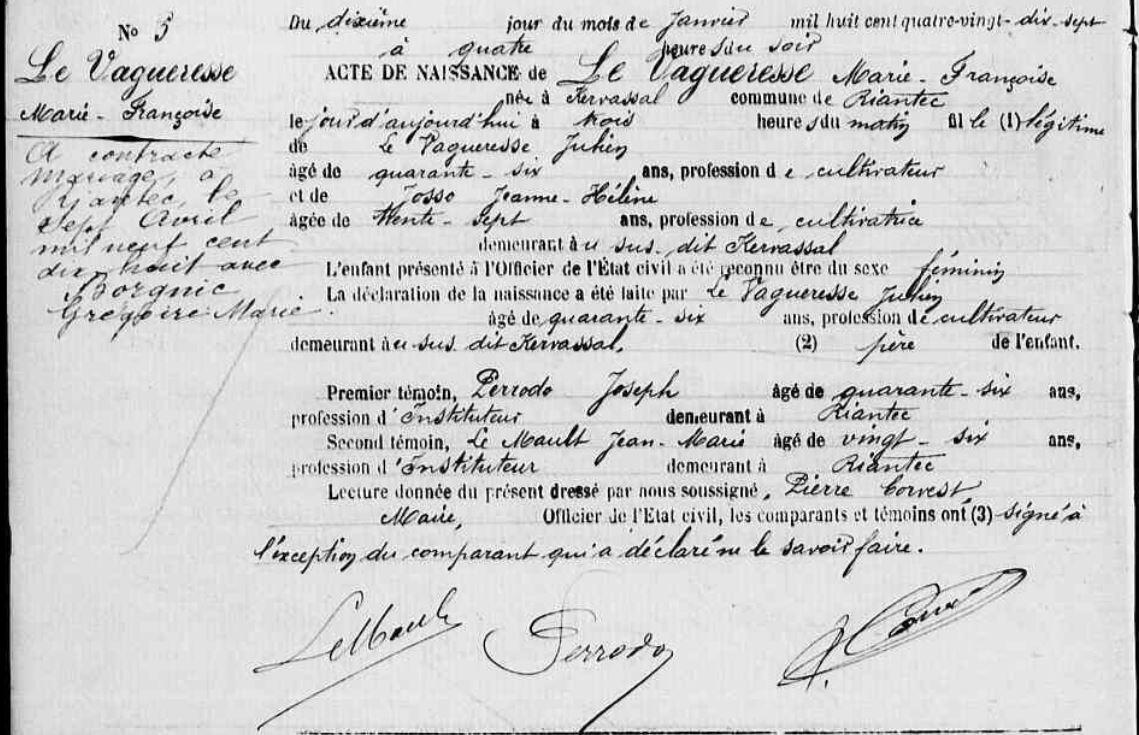 No 5
Le Vagueresse
Marie-Françoise
A contracté
mariage, à
Riantec, le
sept Avril
mil neuf cent
dix huit avec
Borgnic
Grégoire Marie.
Du dixième jour du mois de Janvier mil huit cent quatre-vingt-dix-sept
à quatre heures du soir
ACTE DE NAISSANCE de Le Vagueresse Marie-Françoise
née à Kervassal commune de Riantec
le jour d'aujourd'hui à trois heures du matin fille (1) légitime
de Le Vagueresse Julien
âgé de quarante-six ans, profession de cultivateur
et de Josso Jeanne-Hélène
âgée de trente-sept ans, profession de cultivatrice
demeurant au sus. dit Kervassal
L'enfant présenté à l'Officier de l'État civil a été reconnu être du sexe féminin
La déclaration de la naissance a été faite par Le Vagueresse Julien
âgé de quarante-six ans, profession de cultivateur
demeurant au sus. dit Kervassal. (2) père de l'enfant.
Premier témoin, Perrodo Joseph âgé de quarante-six ans,
profession d'Instituteur demeurant à Riantec
Second témoin, Le Mault Jean-Marie âgé de vingt-six ans,
profession d'Instituteur demeurant à Riantec
Lecture donnée du présent dressé par nous soussigné, Pierre Corvest,
Maire, Officier de l'Etat civil, les comparants et témoins ont (3) signé à
l'exception du comparant qui a déclaré ne le savoir faire.
Le Mault Perrodo